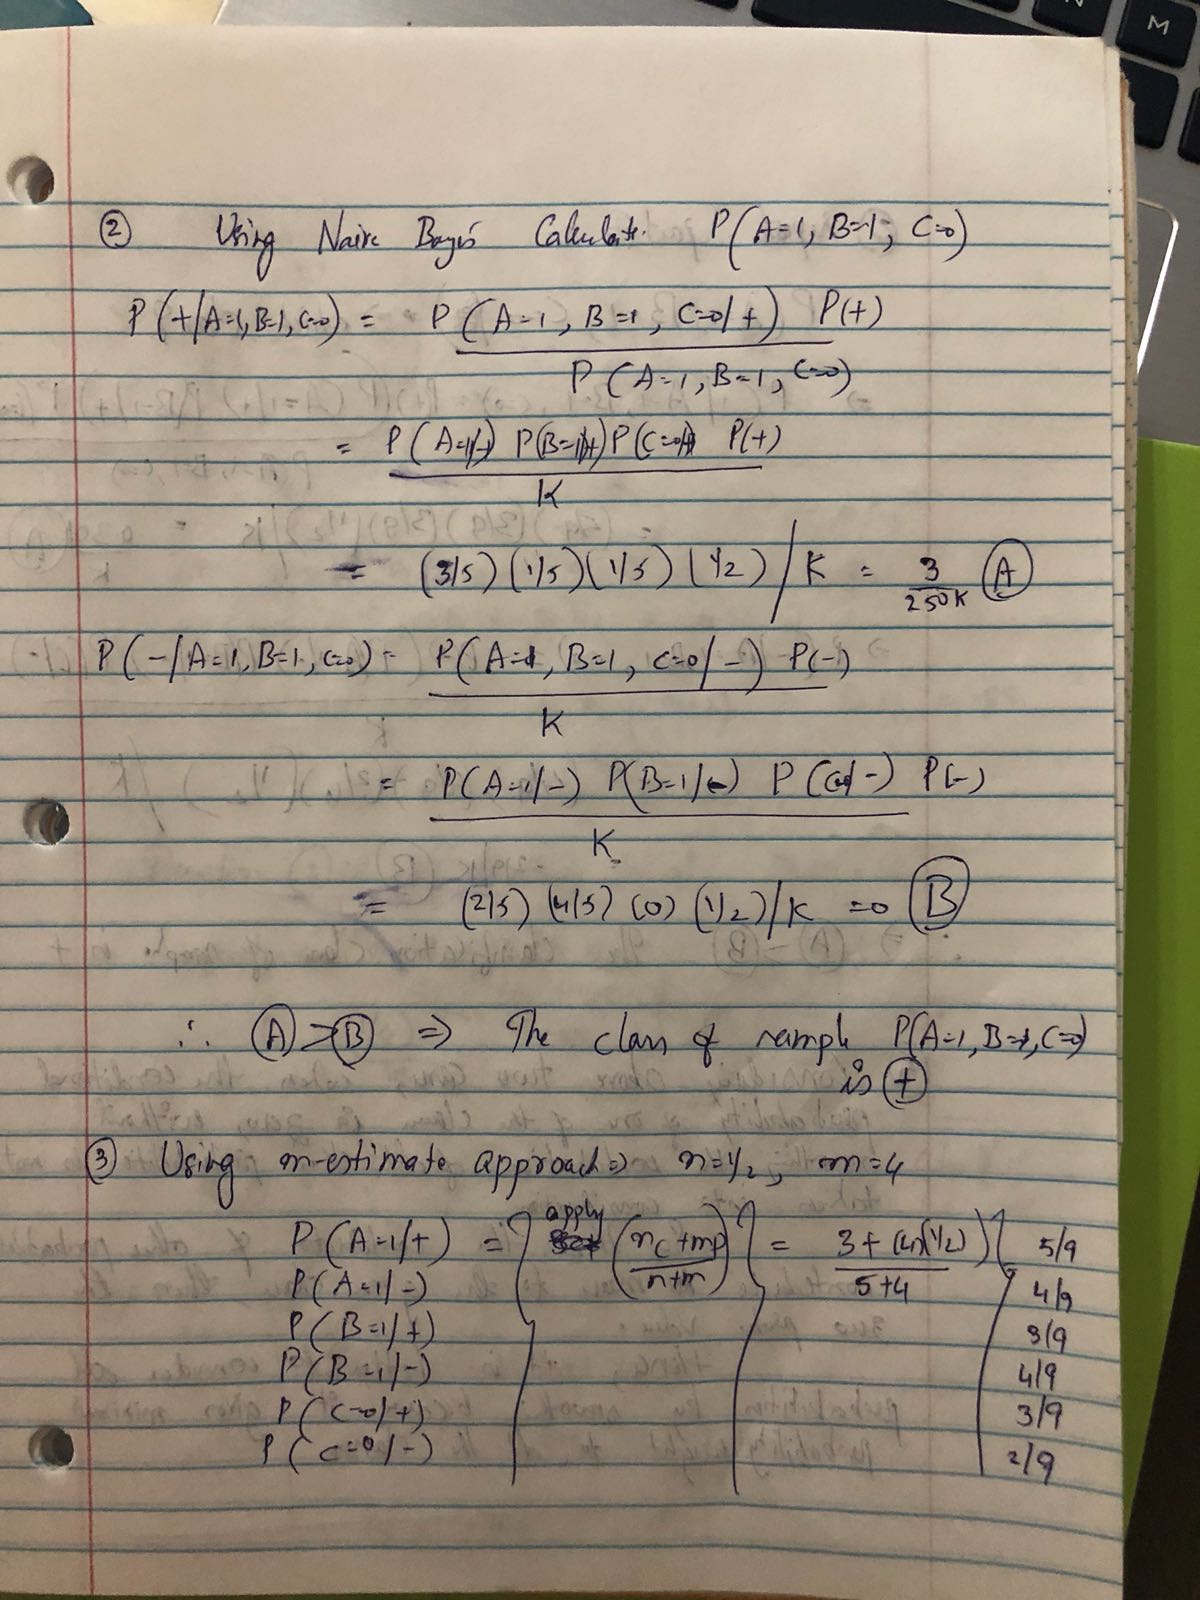 ② Using Naive Bayes Calculate. P(A=1, B=1, C=0)
P(+/A=1, B=1, C=0) = P(A=1, B=1, C=0/+) P(+)
P(A=1, B=1, C=0)
= P(A=1/+) P(B=1/+) P(C=0/+) P(+)
K
= (3/5) (1/5) (1/5) (1/2) / K = 3/250K Ⓐ
P(-/A=1, B=1, C=0) = P(A=1, B=1, C=0/-) P(-)
K
= P(A=1/-) P(B=1/-) P(C=0/-) P(-)
K
= (2/5) (4/5) (0) (1/2)/K =0 Ⓑ
∴ Ⓐ>Ⓑ ⇒ The class of sample P(A=1, B=1, C=0)
is ⊕
③ Using m-estimate approach ⇒ n=1/2, m=4
P(A=1/+) = { apply (nc+mp / n+m) } = 3+(4)(1/2) / 5+4 ) { 5/9
P(A=1/-) 4/9
P(B=1/+) 3/9
P(B=1/-) 4/9
P(C=0/+) 3/9
P(C=0/-) 2/9